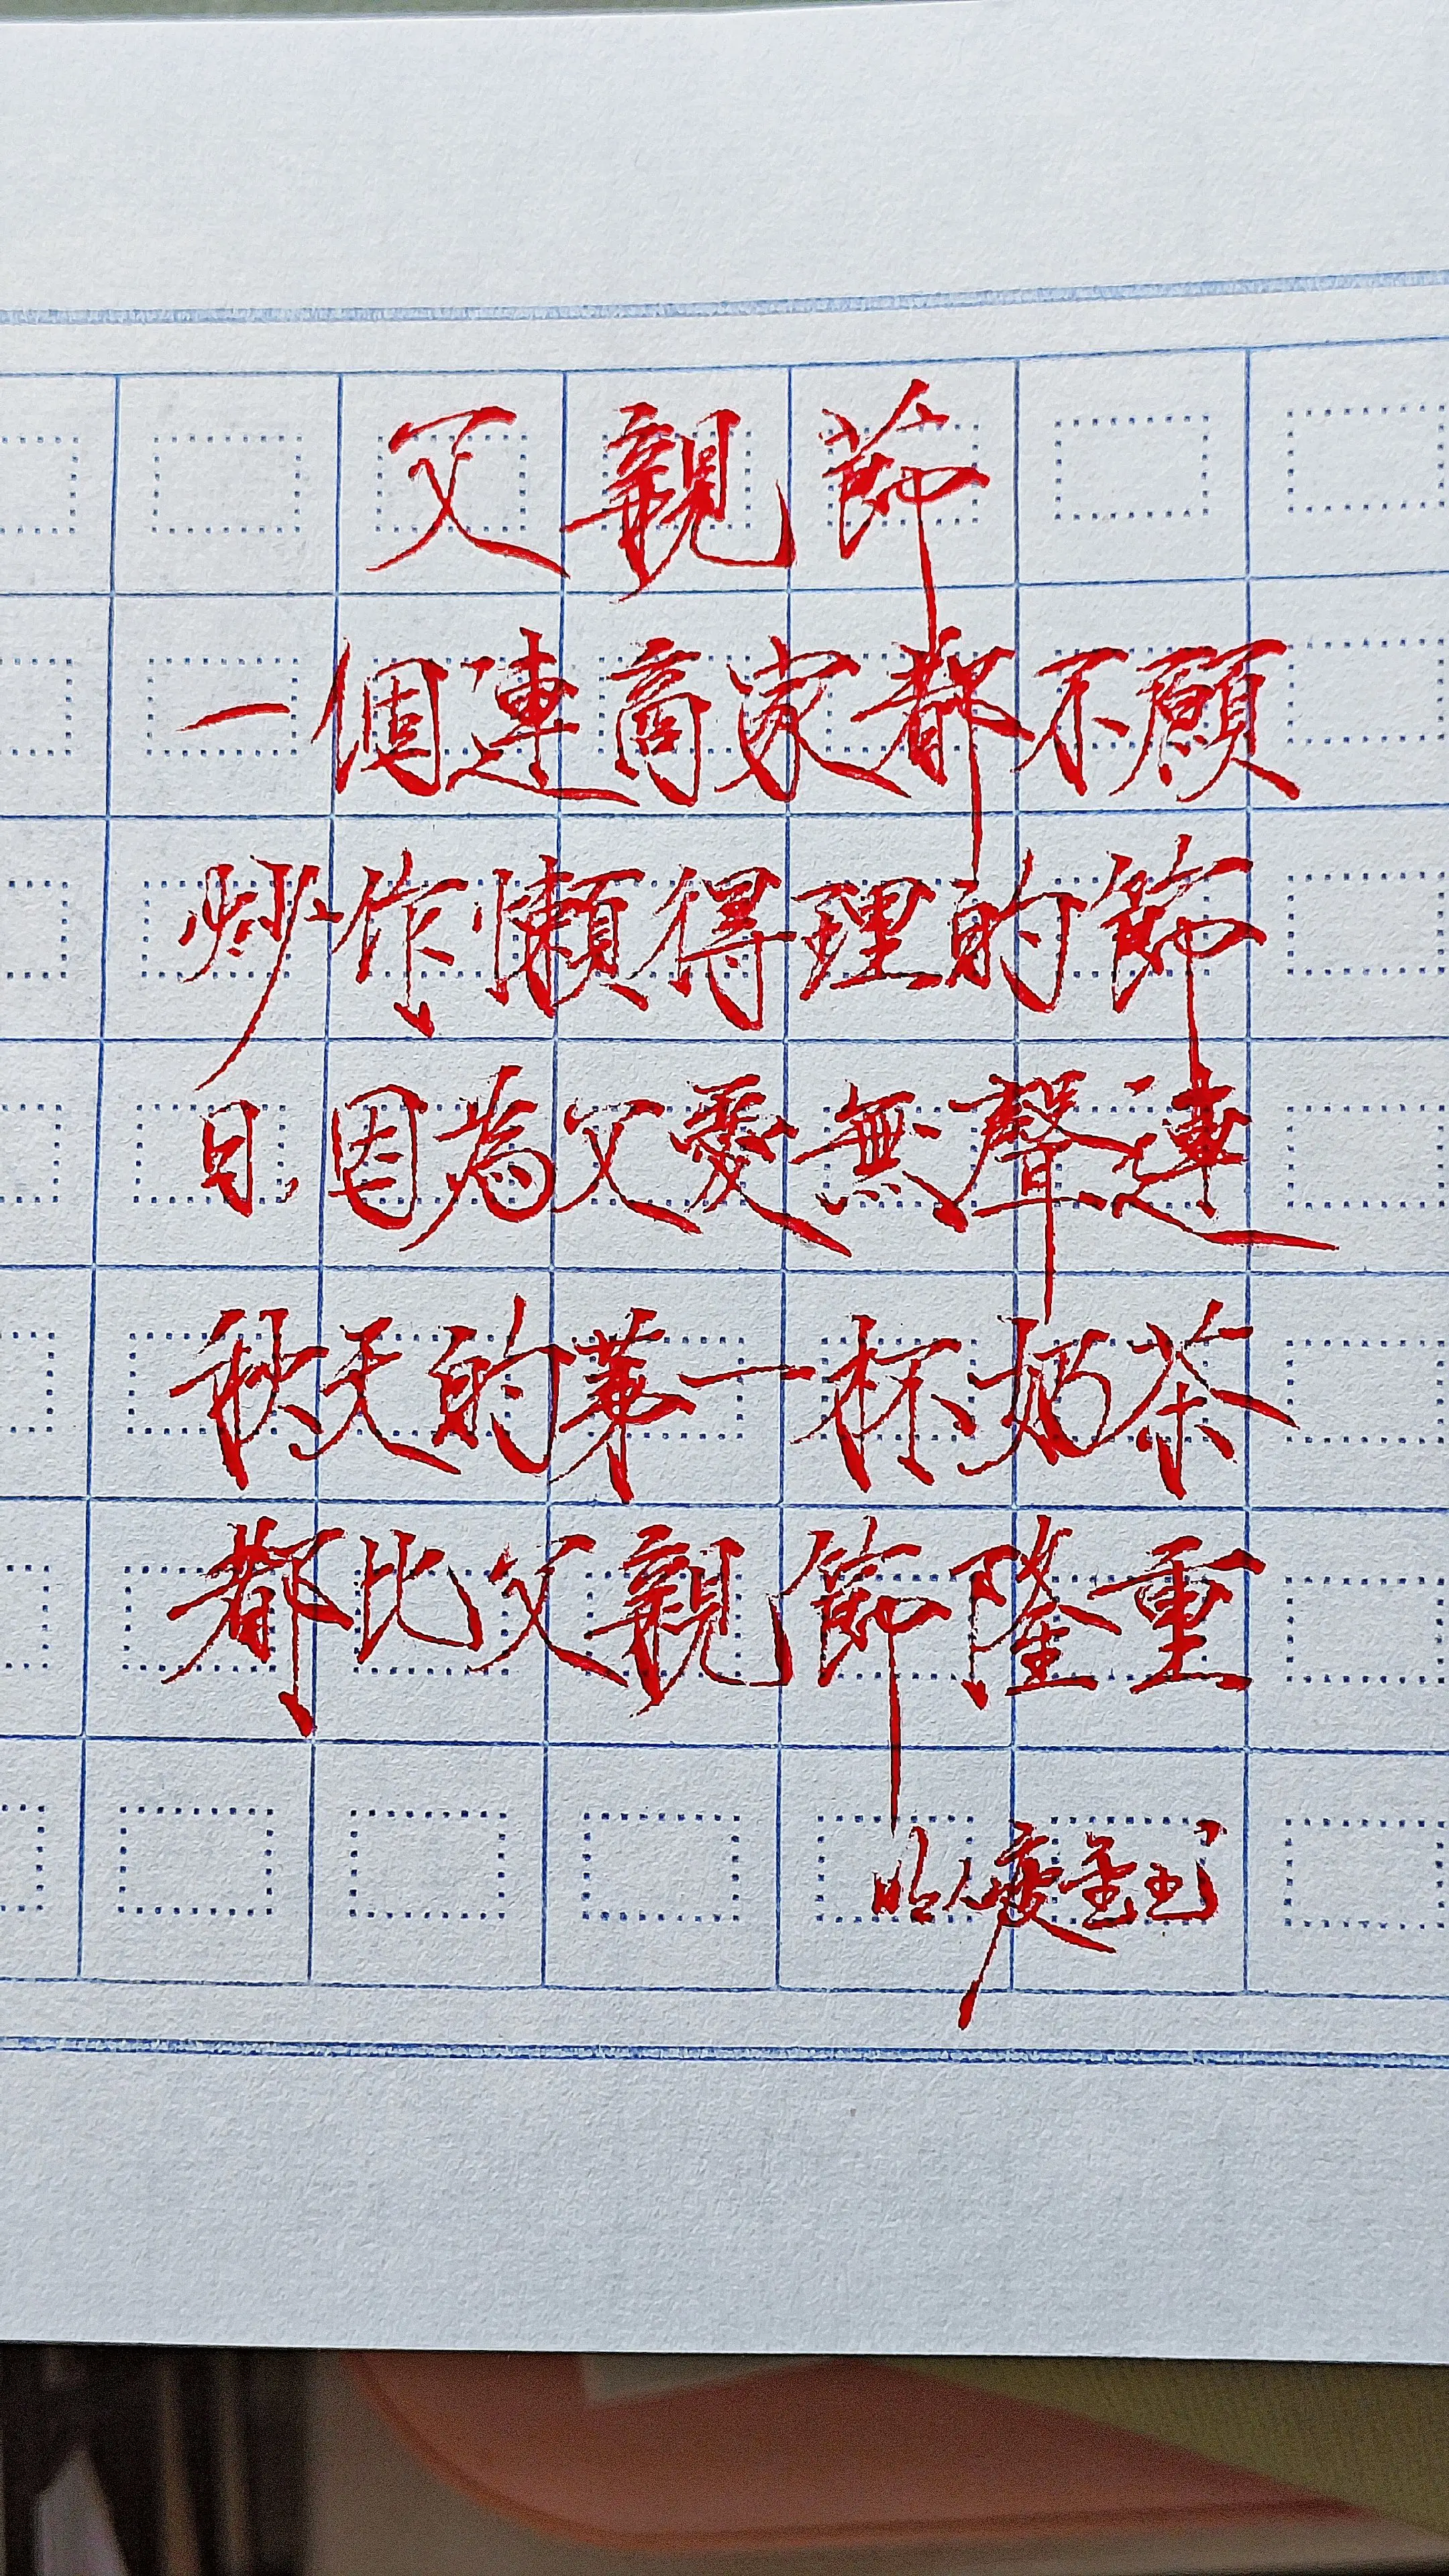 父親節
一個連商家都不願
炒作懶得理的節
日,因為父愛無聲連
秋天的第一杯奶茶
都比父親節隆重